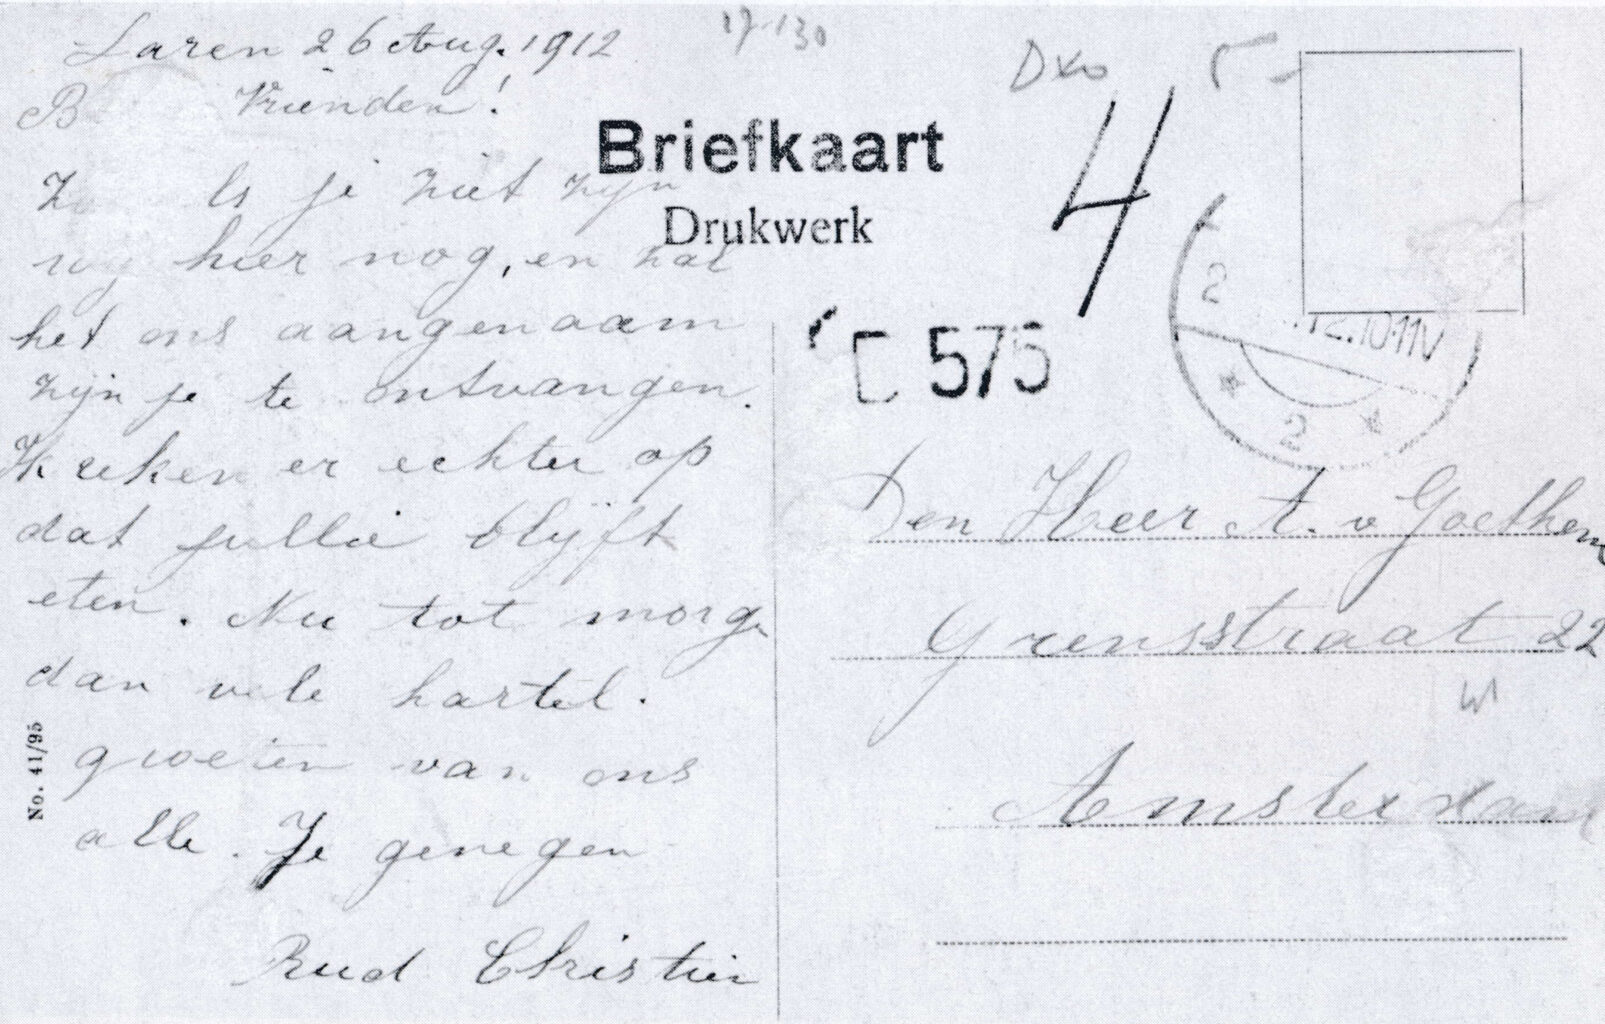 Laren 26 Aug. 1912
Vrienden!
ls je ziet zijn
wij hier nog, en zal
het ons aangenaam
zijn je te ontvangen.
Ik reken er echter op
dat jullie blijft
eten. Nu tot morge
dan vele hartel.
groeten van ons
alle. Je genegen
Rud Christien
No. 41/95
17-130
Dxo
Briefkaart
Drukwerk
4
575
2
.12.10-11V
2
Den Heer A. v Goethem
Grensstraat 22
Amsterdam